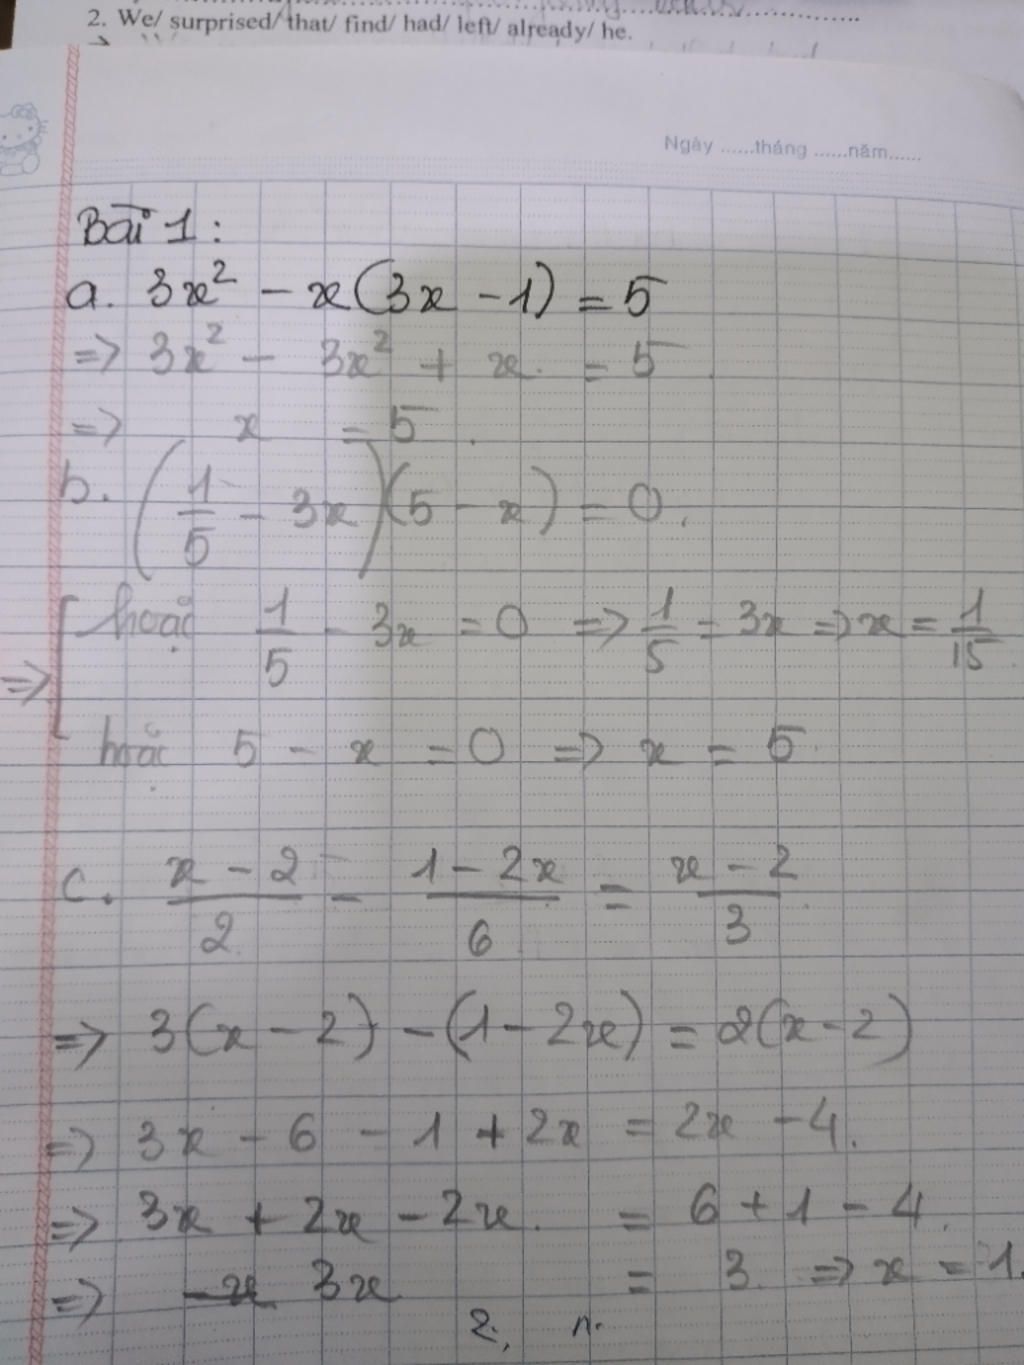 2. We/ surprised/ that/ find/ had/ left/ already/ he.
Ngày ......tháng ......năm......
Bài 1:
a. 3x² - x(3x - 1) = 5
=> 3x² - 3x² + x = 5
=> x = 5.
b. (1/5 - 3x)(5 - x) = 0.
=> [ hoặc 1/5 - 3x = 0 => 1/5 = 3x => x = 1/15
hoặc 5 - x = 0 => x = 5
c. x - 2/2 - 1 - 2x/6 = x - 2/3
=> 3(x - 2) - (1 - 2x) = 2(x - 2)
=> 3x - 6 - 1 + 2x = 2x - 4.
=> 3x + 2x - 2x = 6 + 1 - 4.
=> 3x = 3 => x = 1.